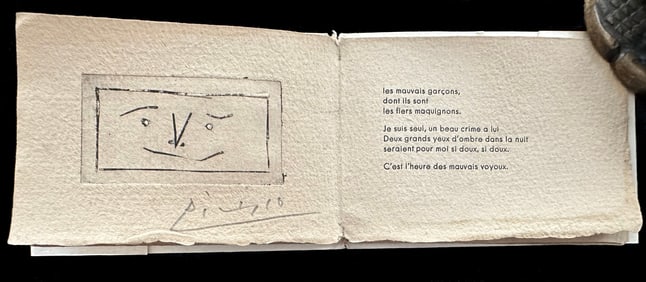 Picasso
les mauvais garçons,
dont ils sont
les fiers maquignons.
Je suis seul, un beau crime a lui
Deux grands yeux d'ombre dans la nuit
seraient pour moi si doux, si doux.
C'est l'heure des mauvais voyoux.